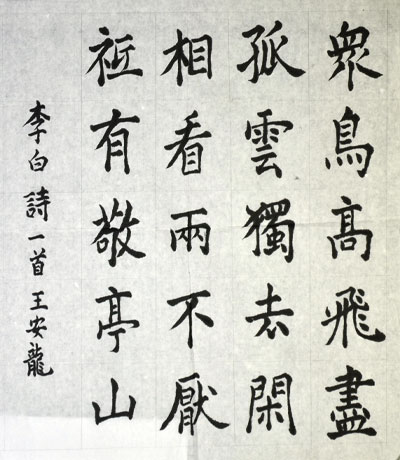 眾鳥高飛盡
孤雲獨去閑
相看兩不厭
祗有敬亭山
李白詩一首王安龍